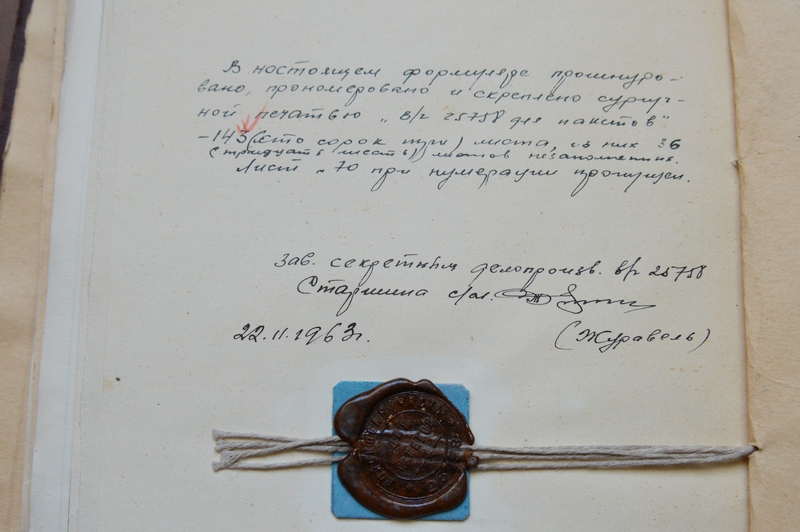 В настоящем формуляре прошнуро-
вано, прономеровано и скреплено сургуч-
ной печатью „в/ч 25758 для пакетов"
-143 (сто сорок три) листа, из них 36
(тридцать шесть) листов незаполненных.
Лист № 70 при нумерации пропущен.
Зав. секретным делопроизв. в/ч 25758
Старшина с/сл.
22.11.1963г.
(Журавель)